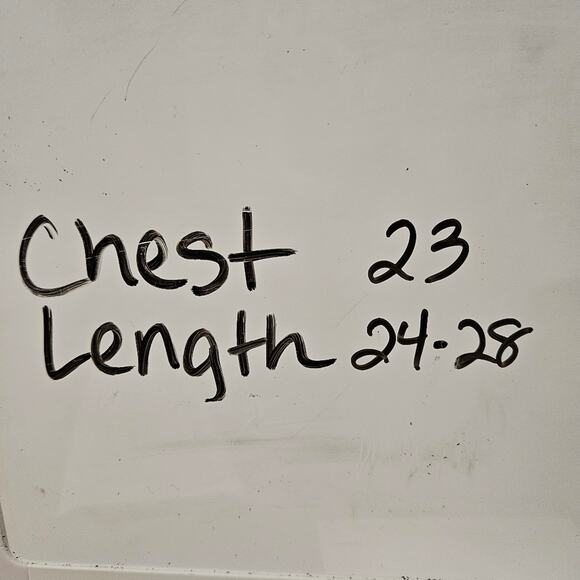 Chest 23
Length 24-28